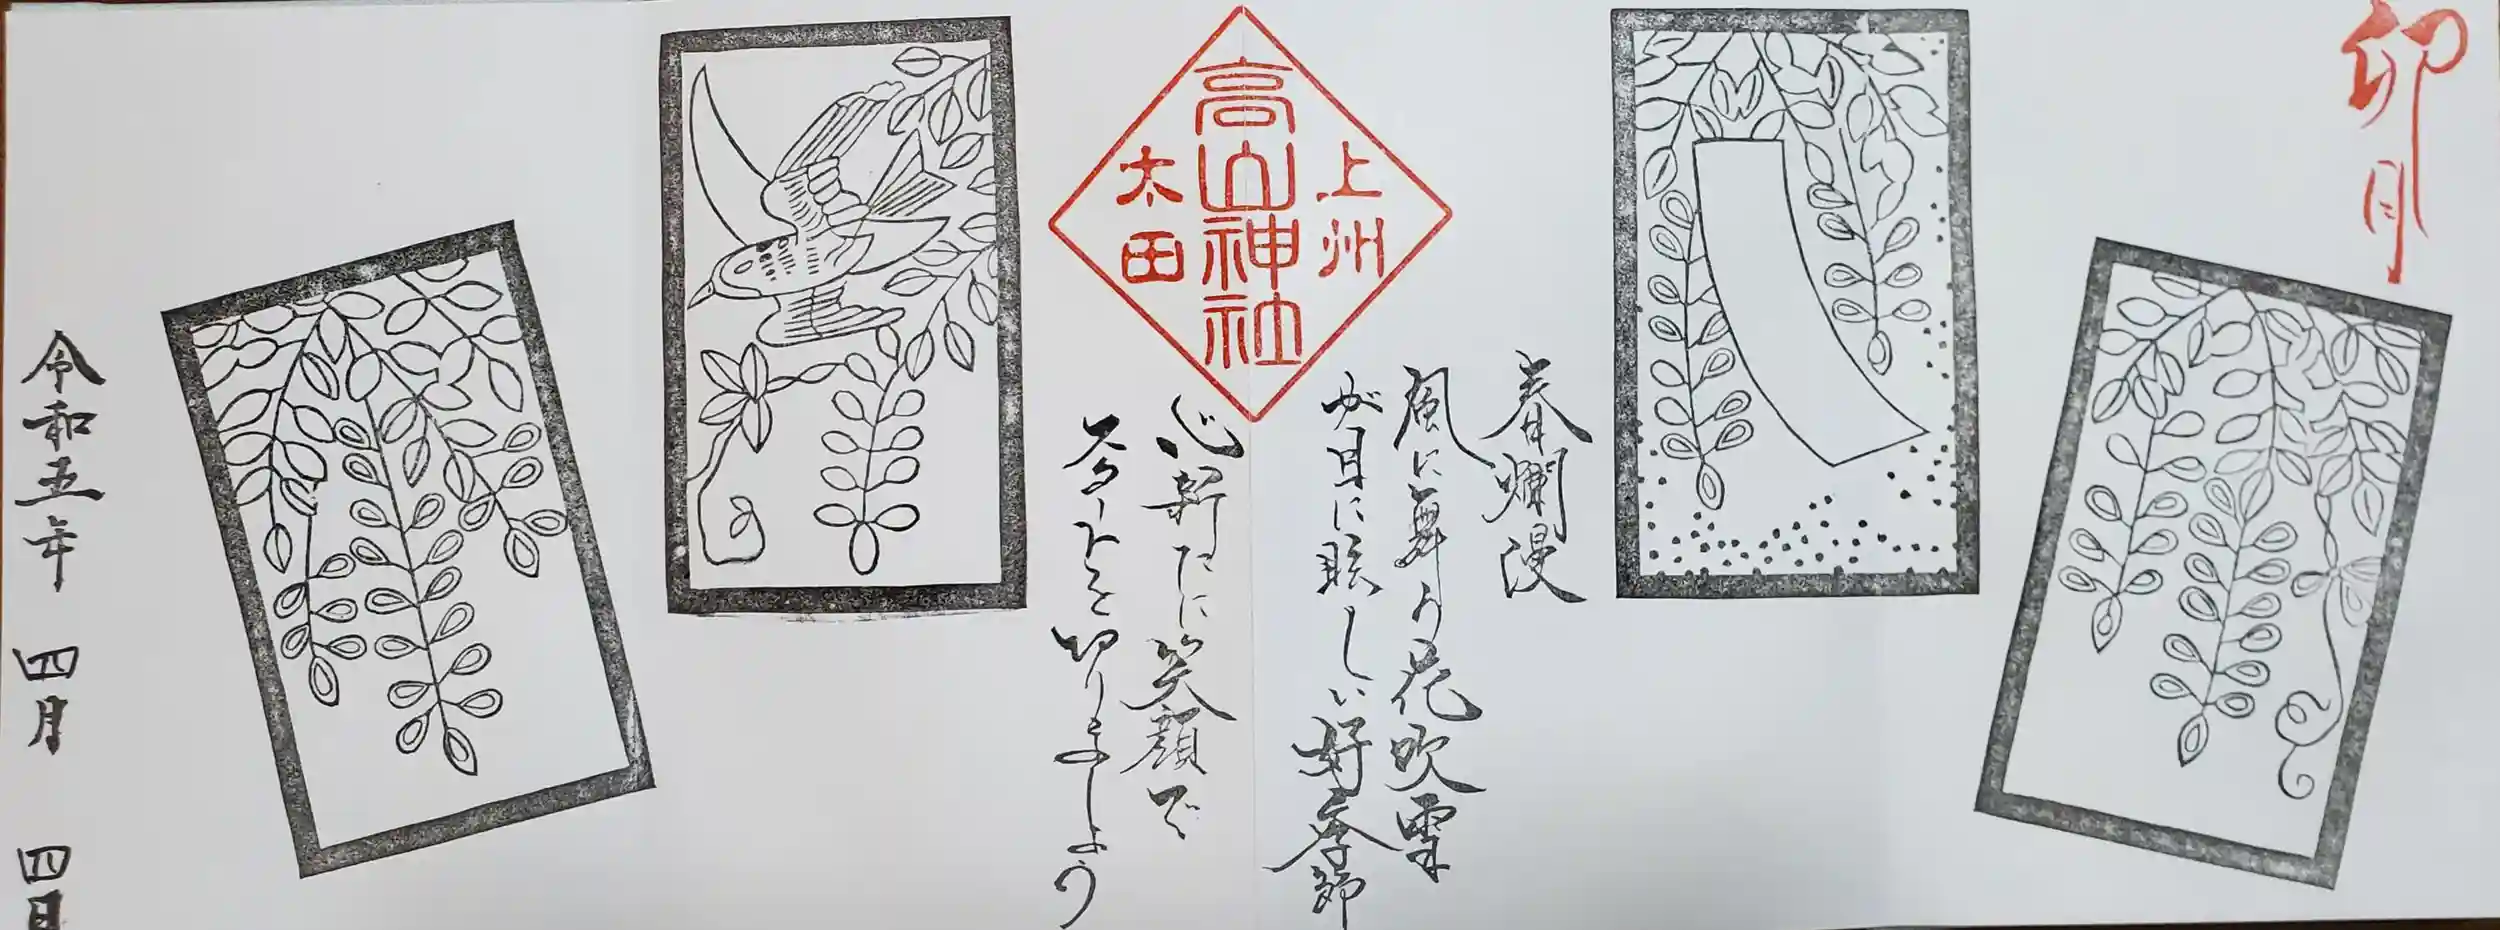 卯月
春爛漫
風に舞う花吹雪
が目に眩しい好季節
上州
高山神社
太田
心新たに笑顔で
スタートを切りましょう
令和五年 四月 四日